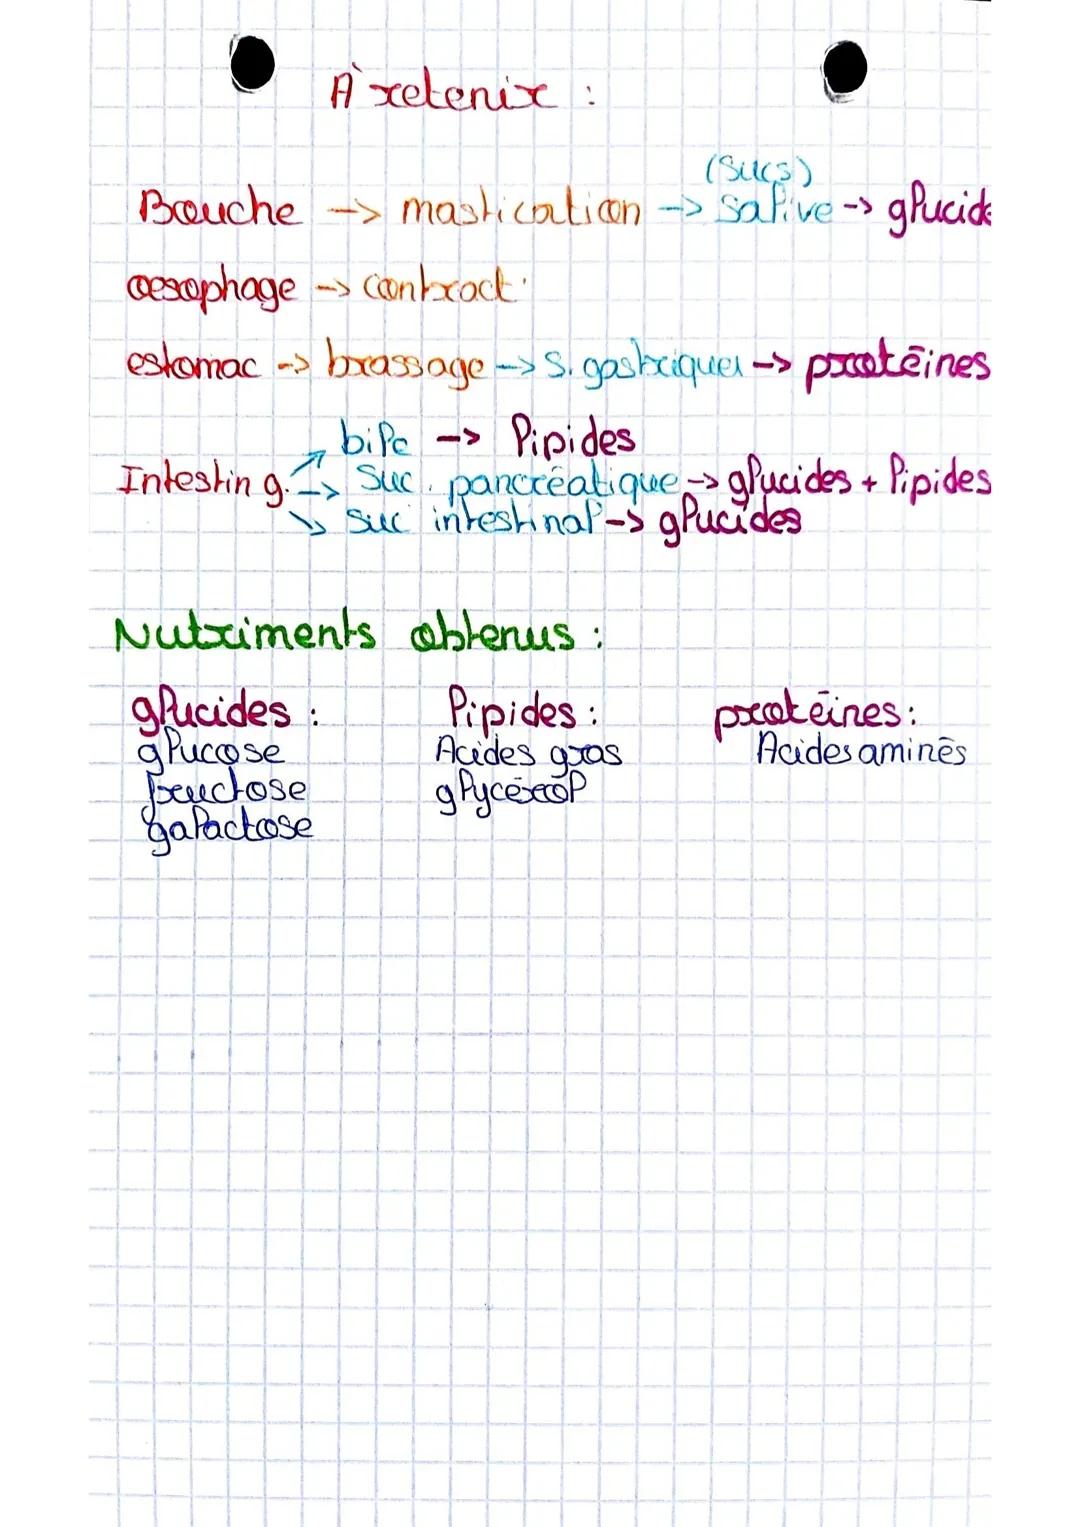 À retenir :
(Sucs)
Bouche -> mastication -> Salive -> glucide
oesophage -> contract°
estomac -> brassage -> S. gastrique -> protéines
bile -> lipides
Intestin g. -> Suc. pancréatique -> glucides + lipides
-> suc intestinal -> glucides
Nutriments obtenus :
glucides : lipides : protéines :
glucose Acides gras Acides aminés
fructose glycérol
galactose